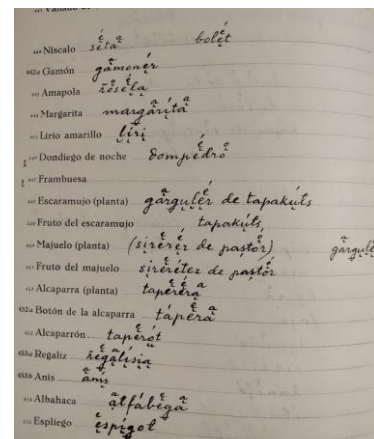 Níscalo sẹ́ta bolẹ́t
442a Gamón gamonẹ́r
Amapola r̄osẹ́la
Margarita margaríta
Lirio amarillo l̮íri
Dondiego de noche dompẹ́dro
Frambuesa
Escaramujo (planta) gargulẹ́r de tapakúts
Fruto del escaramujo tapakúts
Majuelo (planta) (sirerẹ́r de pastór) gargulẹ́
Fruto del majuelo sirerẹ́tez de pastór
Alcaparra (planta) taperẹ́ra
452a Botón de la alcaparra tápera
Alcaparrón taperót
453a Regaliz r̄egalísia
453b Anís anís
Albahaca alfábega
Espliego espígol